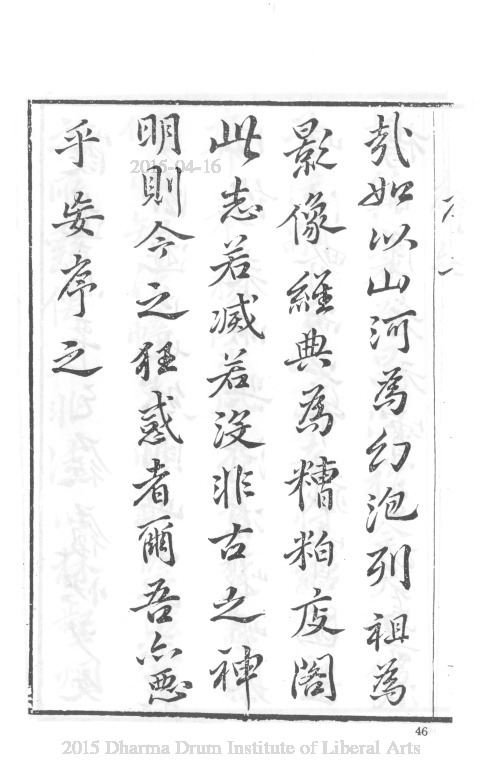 哉如以山河為幻泡列祖為
影像經典為糟粕庋閣
此志若滅若沒非古之神
明則今之狂惑者爾吾亦惡
乎妄序之
2015-04-16
46
2015 Dharma Drum Institute of Liberal Arts